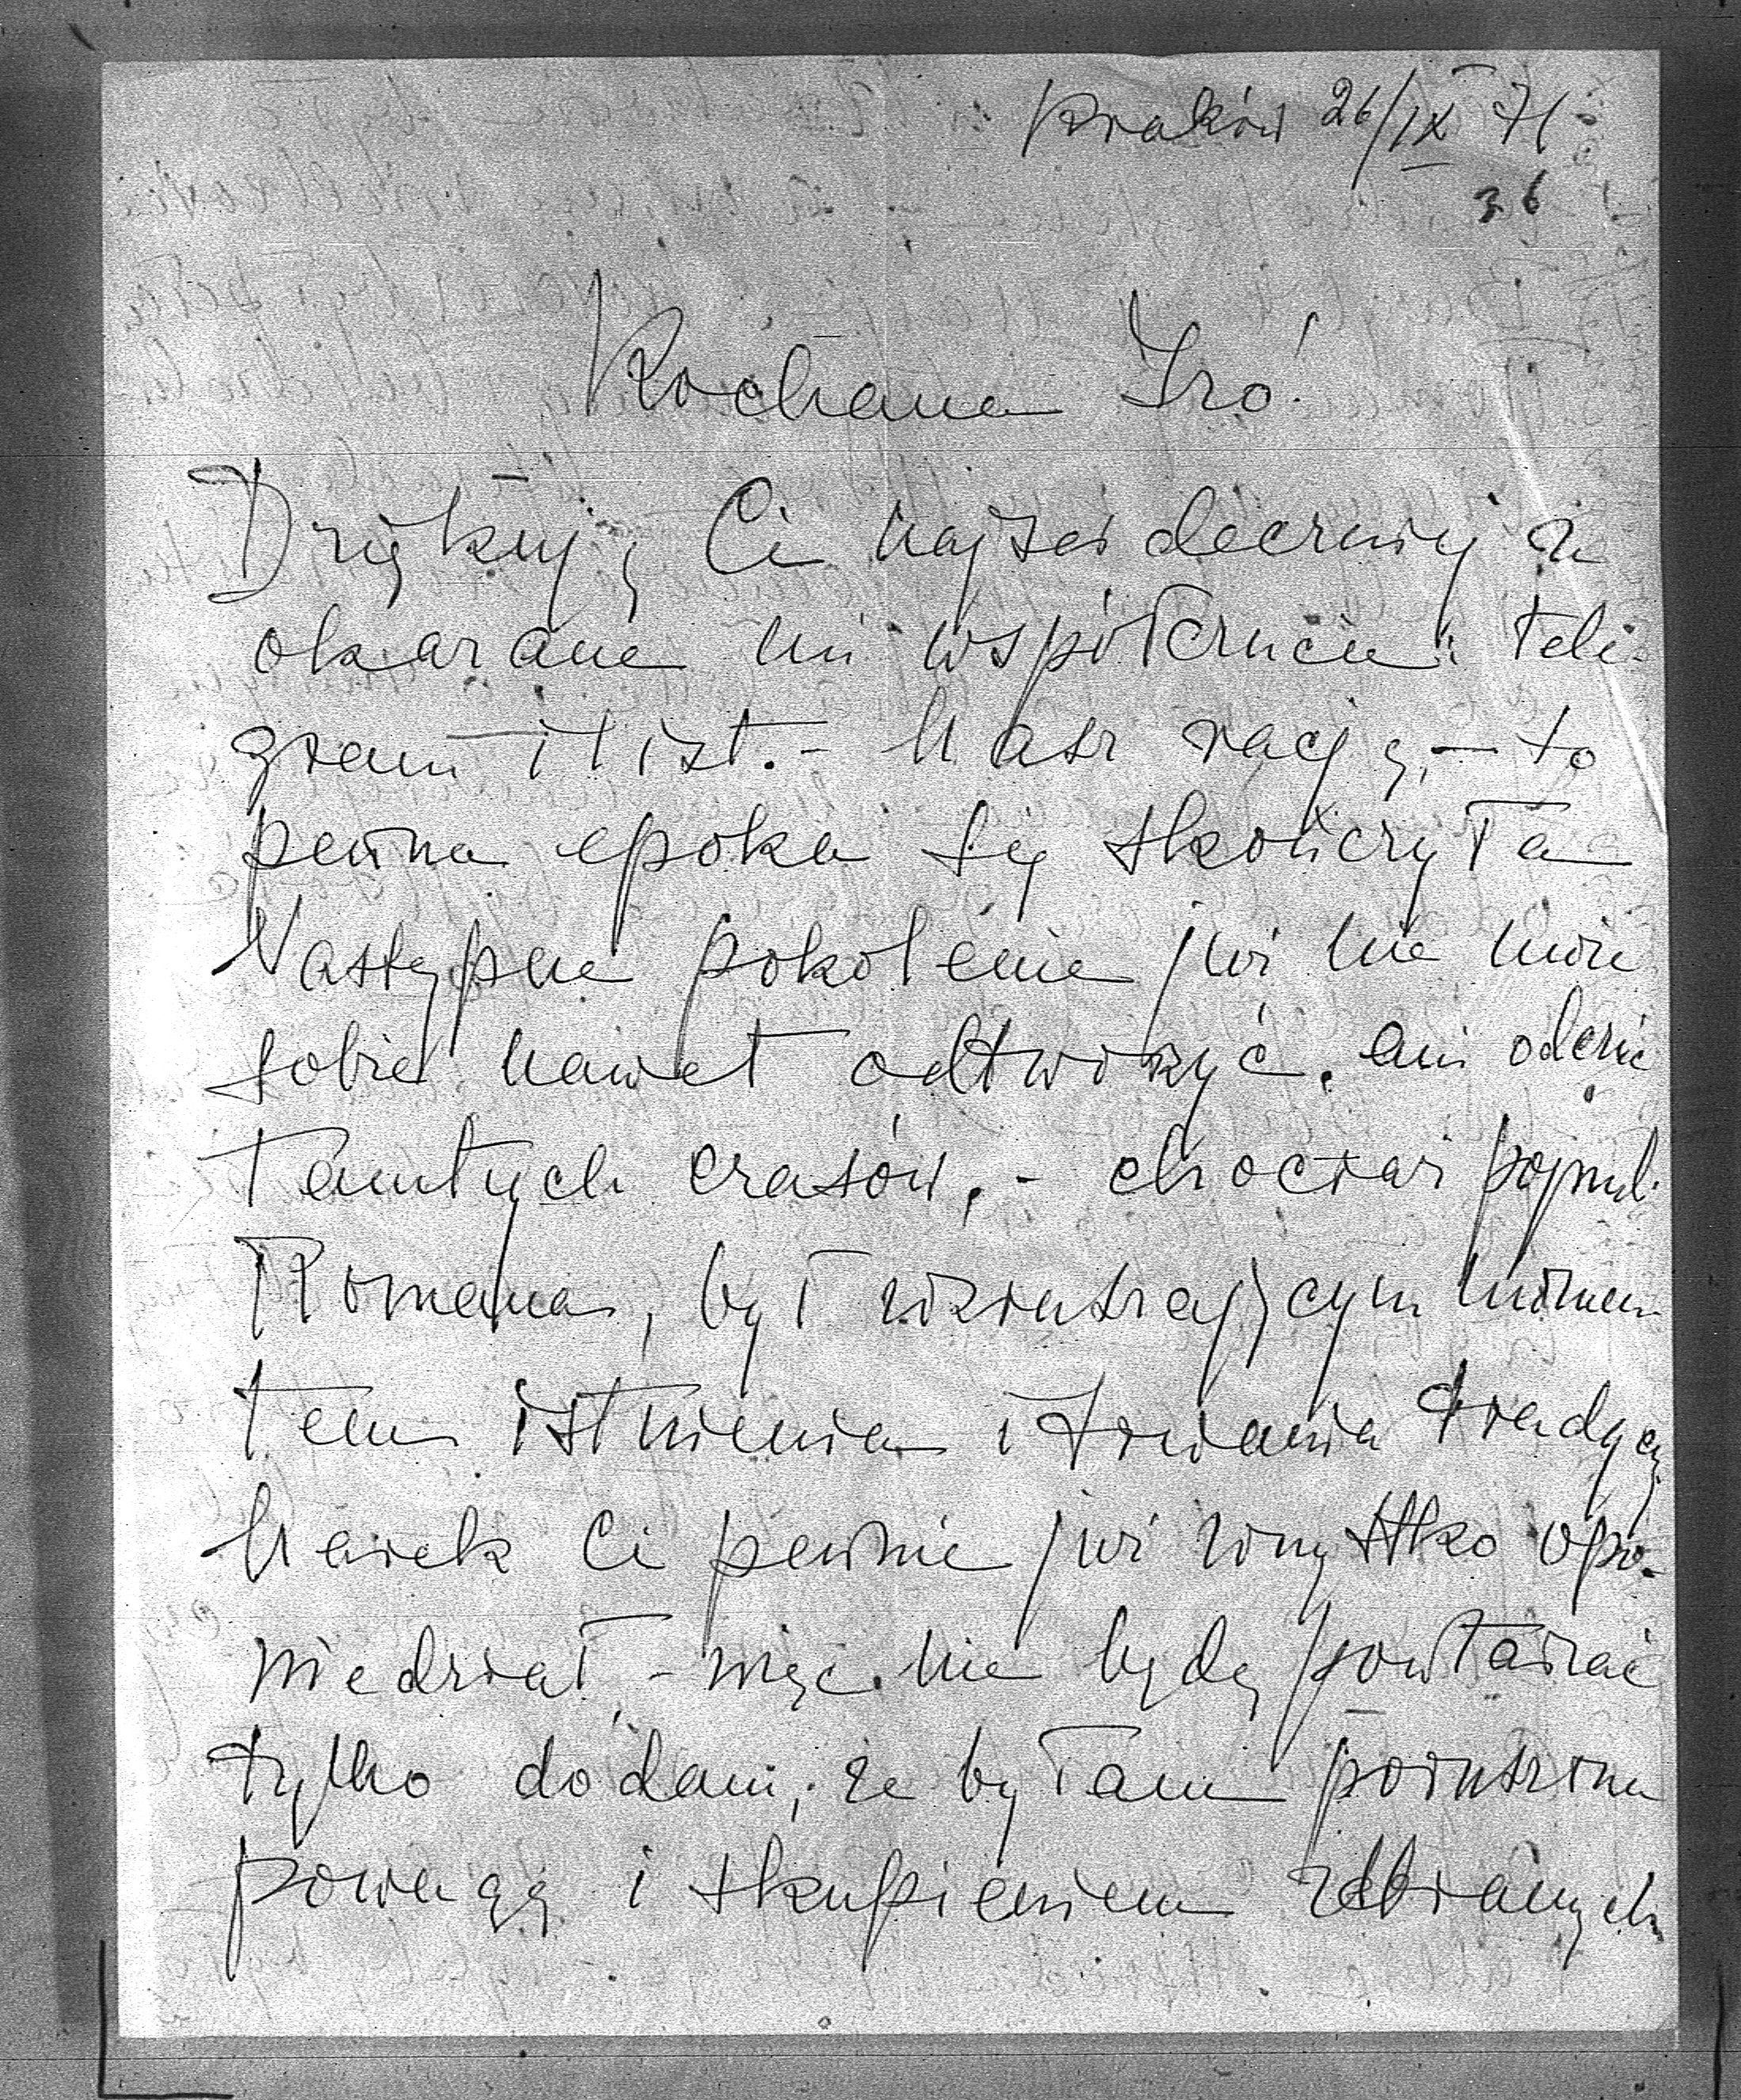 Kraków 26/IX 71
36
Kochana Izo!
Dziękuję Ci najserdeczniej za
okazane mi współczucie: tele-
gram i list. - Masz rację, - to
pewna epoka się skończyła
Następne pokolenie już nie może
sobie nawet odtworzyć, ani odczuć
tamtych czasów, - chociaż pogrzeb
Romana, był wzruszającym momen-
tem istnienia i trwania tradycji
Marek Ci pewnie już wszystko opo-
wiedział - więc nie będę powtarzać
tylko dodam, że byłam poruszona
powagą i skupieniem zebranych